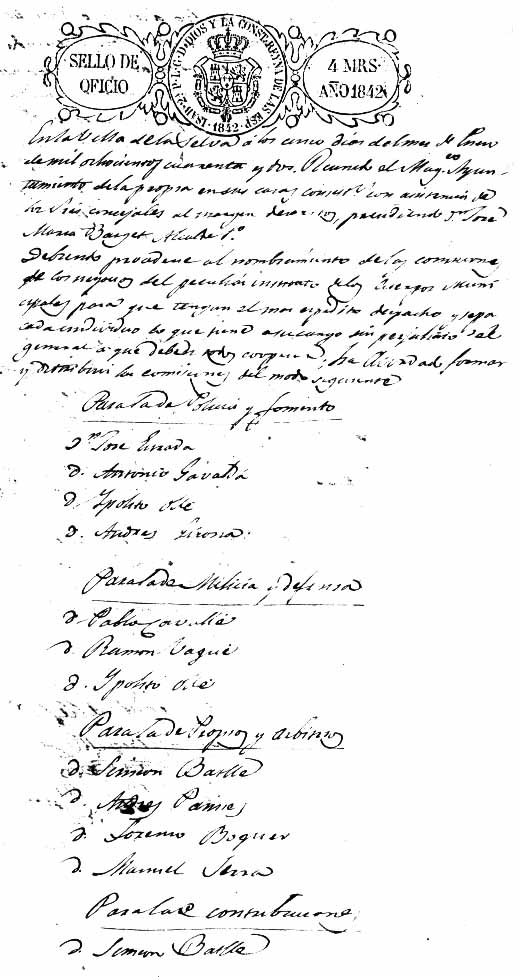 SELLO DE OFICIO
ISAB. 2ª P. L. G. D. DIOS Y LA CONST. REYNA DE LAS ESP. 1842
4 MRS. AÑO 1842
En la Villa de la Selva a los cinco dias del mes de Enero
de mil ochocientos cuarenta y dos. Reunido el Mag.co Ayun-
tamiento de la propia en sus casas consist.s con asistencia de
los Sres. concejales al margen descritos, presidiendo Dn. José
Maria Barget Alcalde 1º.
Debiendo procederse al nombramiento de las comisiones
de los negocios del peculiar instituto de los Cuerpos Muni-
cipales para que tengan el mas espedito despacho y sepa
cada individuo lo que tiene a su cargo sin perjuicio al
general a que deben todos cooperar, ha acordado formar
y distribuir las comisiones del modo siguiente
Para la de Policia y fomento
Dn. José
D. Antonio Gavaldá
D. Ypolito Olle
D. Andres
Para la de Milicia y defensa
D. Pablo Cavallé
D. Ramon Vagué
D. Ypolito Olle
Para la de Propios y arbitrios
D. Simeon Batlle
D. Andres Pamies
D. Lorenzo Boquer
D. Manuel Serra
Para la de contribuciones
D. Simeon Batlle